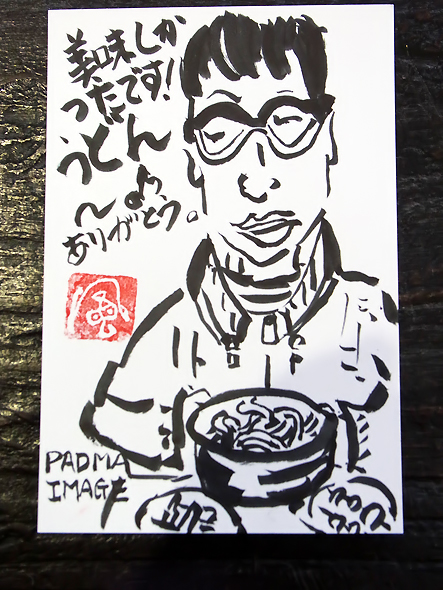 美味しか
ったです!
うどん
〜
ありがとう。
風
PADMA
IMAGE